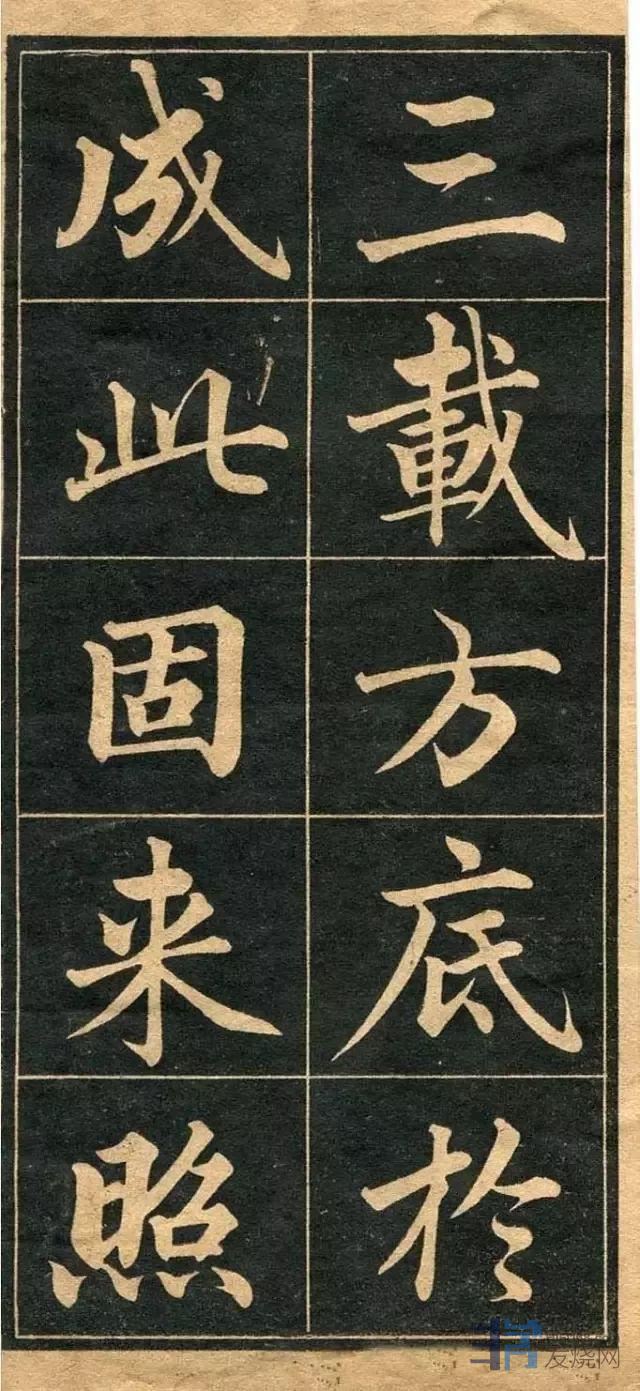 三載方底於
成此固来照
发烧网